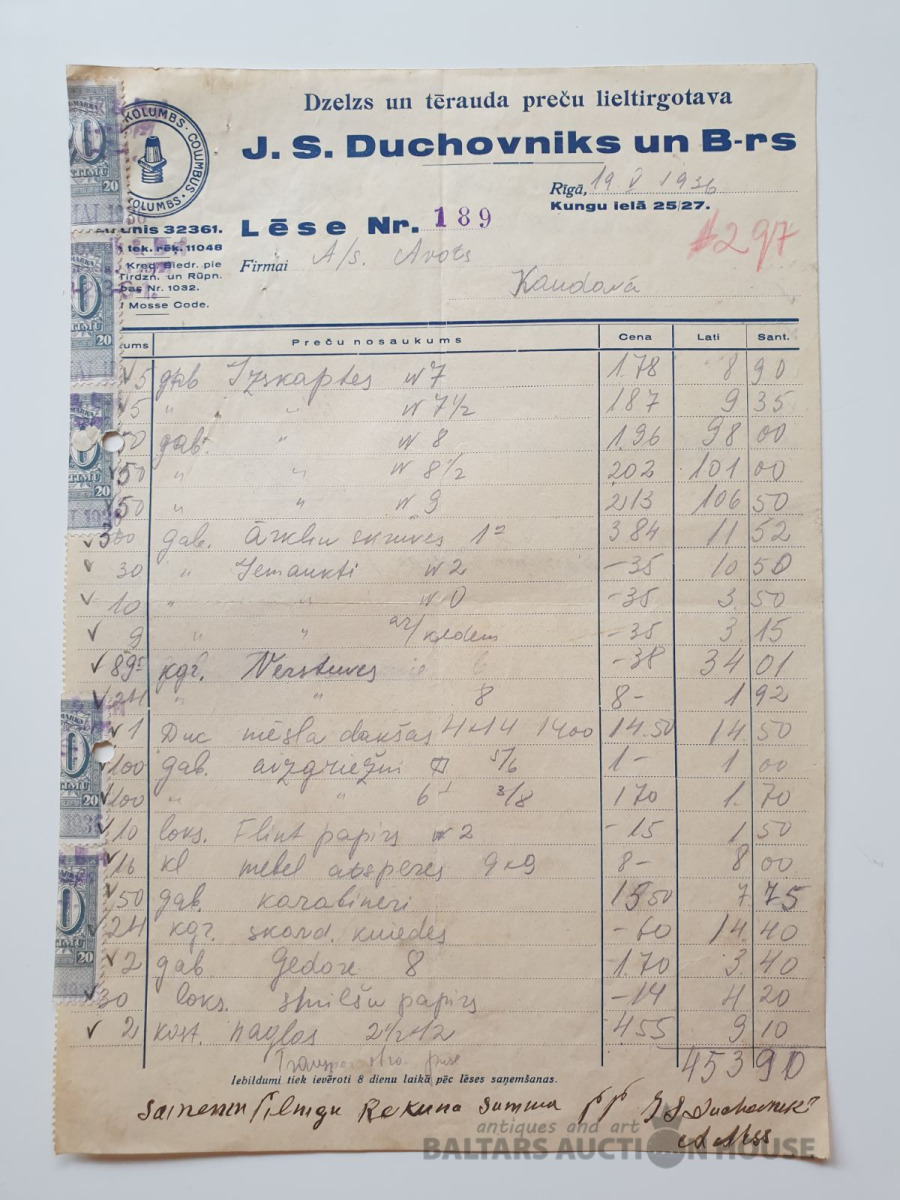 Dzelzs un tērauda preču lieltirgotava
J. S. Duchovniks un B-rs
KOLUMBS · COLUMBUS · KOLUMBS ·
Rīgā, 19 V 1936
Kungu ielā 25/27.
Lēse Nr. 189
unis 32361.
tek. rēk. 11048
Kred. Biedr. pie
Tirdzn. un Rūpn.
Nr. 1032.
Mosse Code.
297
Firmai A/s. Avots
Kandavā
ums Preču nosaukums Cena Lati Sant.
5 gab Izkaptes N 7 1.78 8 90
5 " " N 7 1/2 1.87 9 35
50 gab. " N 8 1.96 98 00
50 " " N 8 1/2 202 101 00
50 " " N 9 213 106 50
300 gab. skrūves 1" 384 11 52
30 " Iemaukti N 2 -35 10 50
10 " " N 0 -35 3 50
9 " " ar/ -35 3 15
895 kgr. 6 -38 34 01
24 " " 8 8- 1 92
1 Duc mēsla dakšas 4x14 1400 14.50 14 50
100 gab. aizgriežņi 5/16 1- 1 00
100 " " 6 3/8 170 1 70
10 loks. Flint papirs N 2 -15 1 50
16 kl mebel atsperes 9x9 8- 8 00
50 gab. karabineri 1550 7 75
24 kgr. skard. kniedes -60 14 40
2 gab Gedore 8 1.70 3 40
30 loks. smilšu papirs -14 4 20
2 kast. naglas 2 1/2 x 12 455 9 10
453 90
Iebildumi tiek ievēroti 8 dienu laikā pēc lēses saņemšanas.
Saņemu pilnigu Rekina Summa pp J S Duchovnik
antiques and art
BALTARS AUCTION HOUSE
20
20
20
20
20